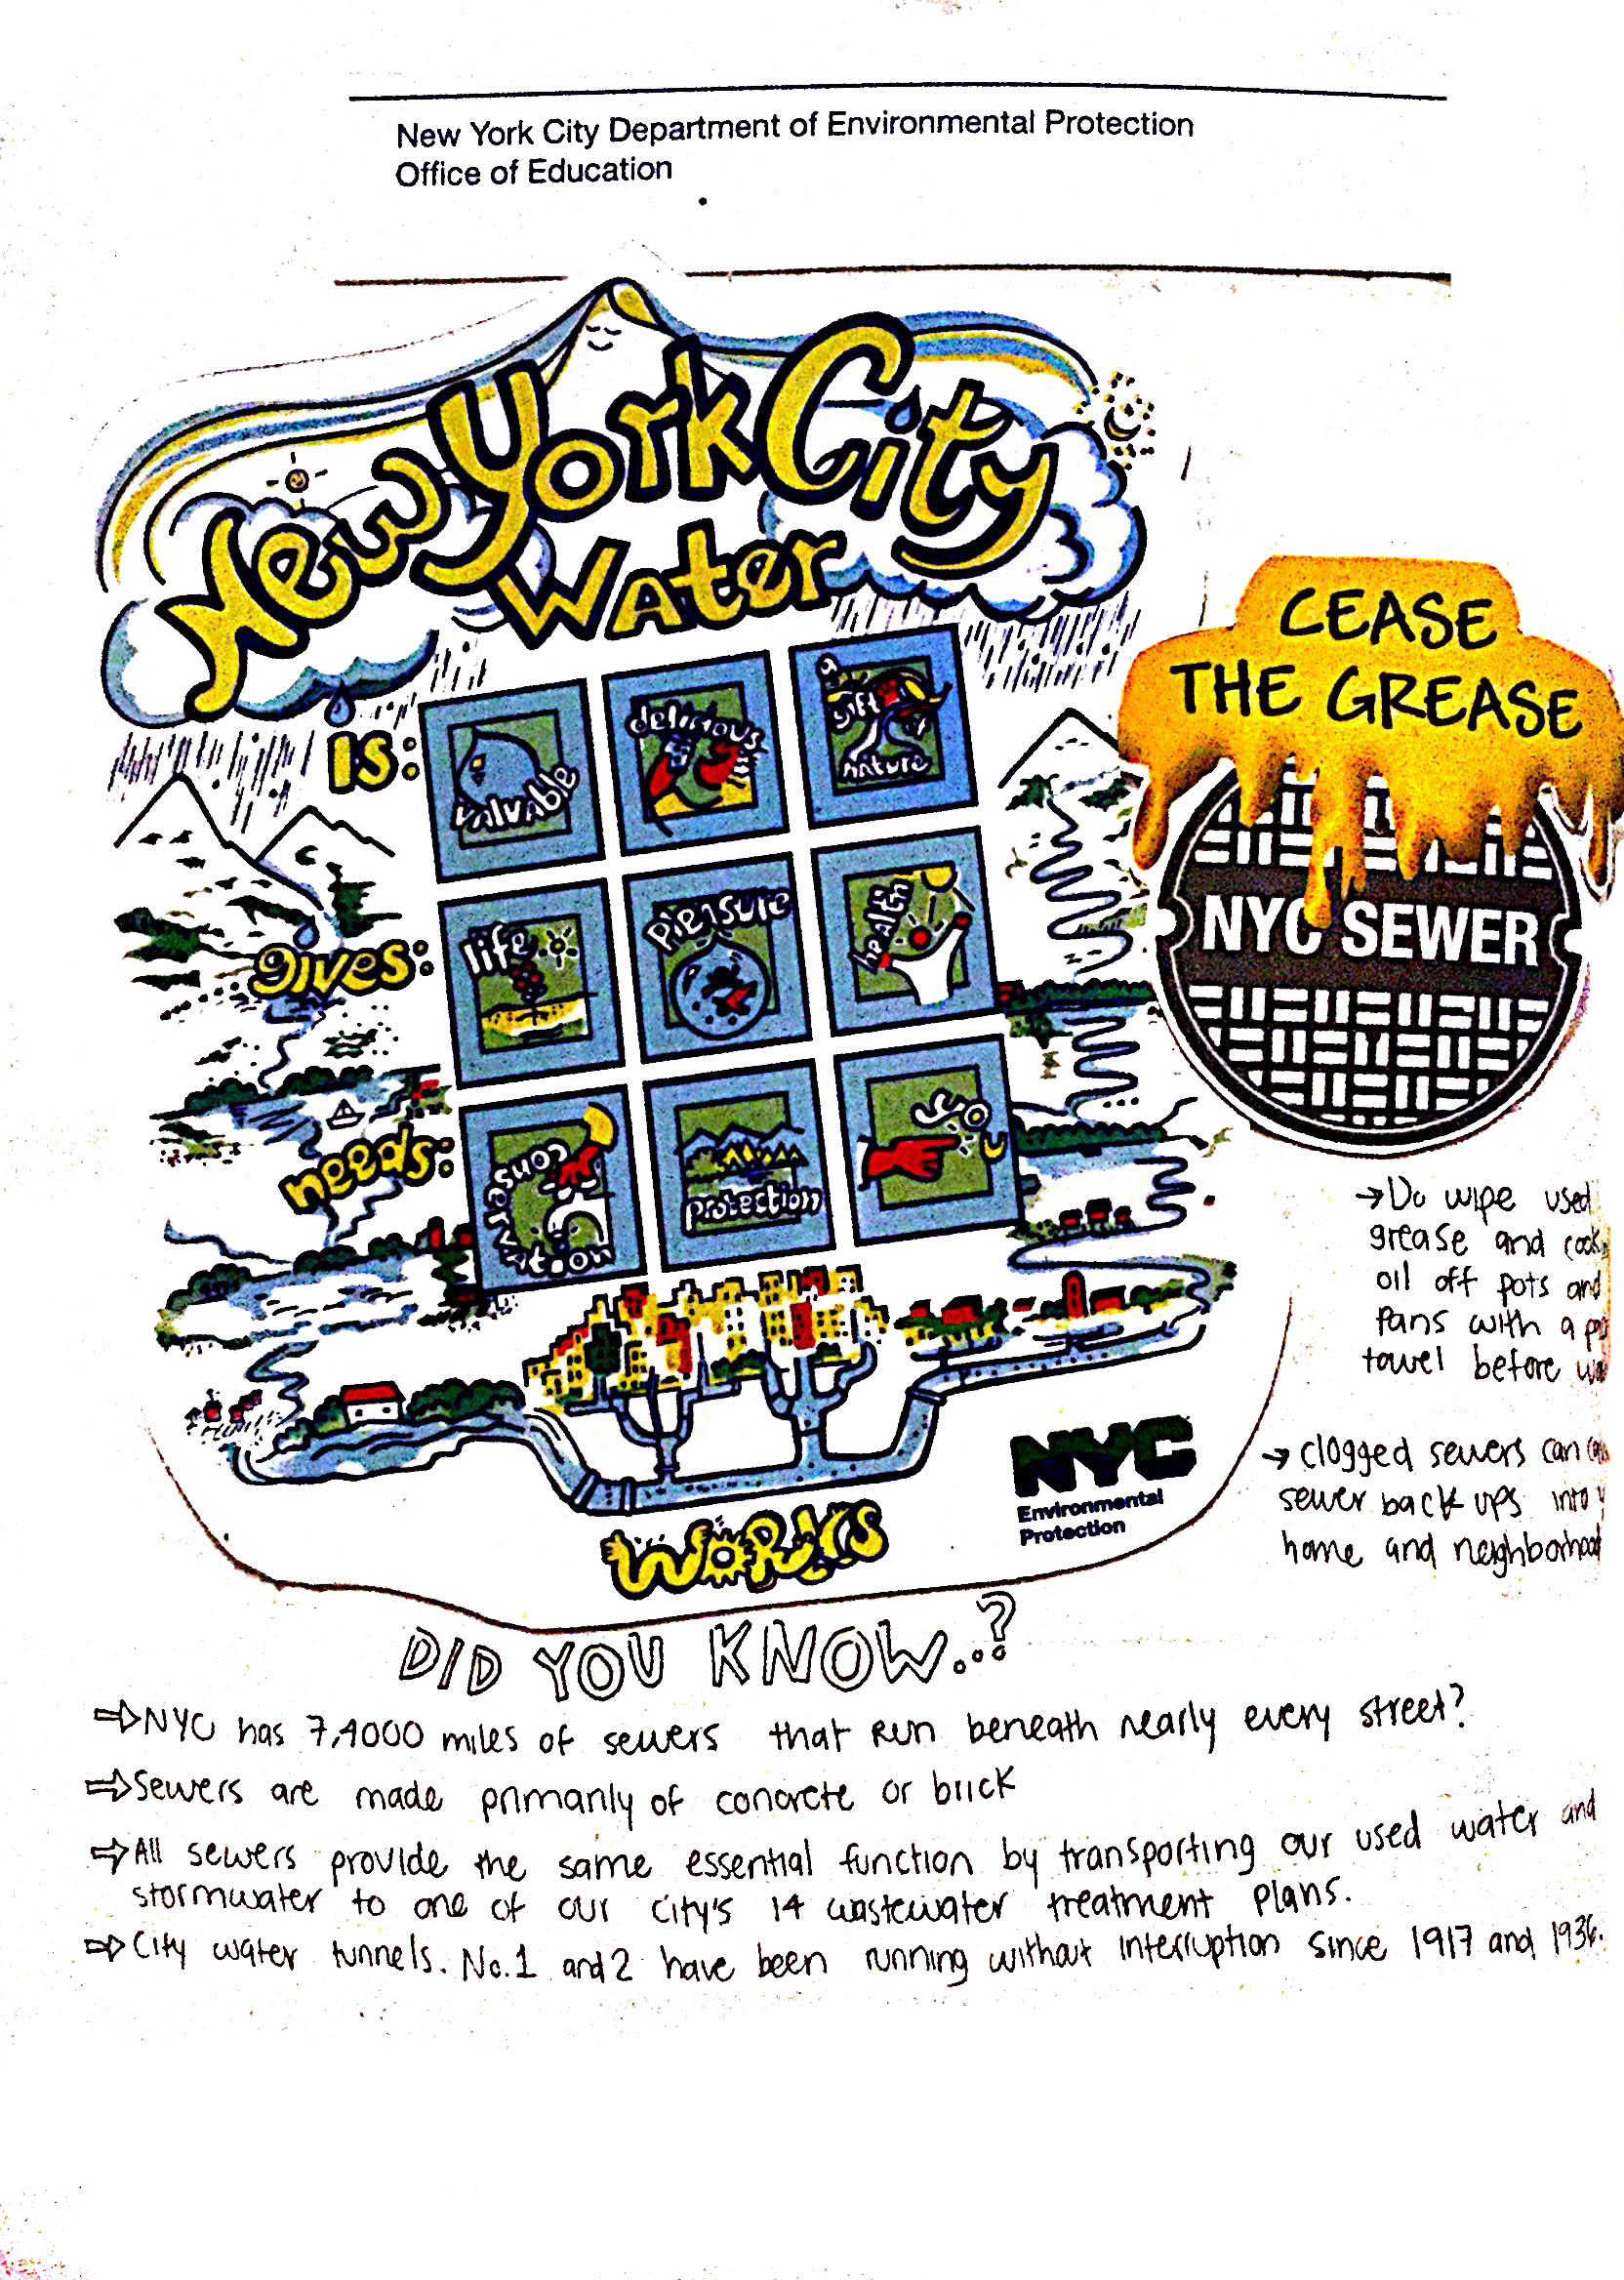 New York City Department of Environmental Protection
Office of Education
New York City
Water
is:
valuable
delicious
a
gift
of
nature
gives:
life
pleasure
health
needs:
conservation
protection
you
WORKS
NYC
Environmental
Protection
CEASE
THE GREASE
NYC SEWER
→ Do wipe used
grease and
oil off pots and
pans with a
towel before
→ clogged sewers can
sewer back ups into
home and
DID YOU KNOW..?
⇨ NYC has 7,4000 miles of sewers that run beneath nearly every street?
⇨ Sewers are made primarily of concrete or brick
⇨ All sewers provide the same essential function by transporting our used water and
stormwater to one of our city's 14 wastewater treatment plans.
⇨ City water tunnels. No.1 and 2 have been running without interruption since 1917 and 1936.